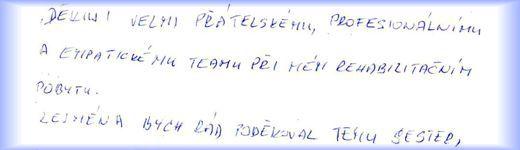 „DĚKUJI VELMI PŘÁTELSKÉMU, PROFESIONÁLNÍMU
A EMPATICKÉMU TEAMU PŘI MÉM REHABILITAČNÍM
POBYTU.
ZEJMÉNA BYCH RÁD PODĚKOVAL TÉMU SESTER,